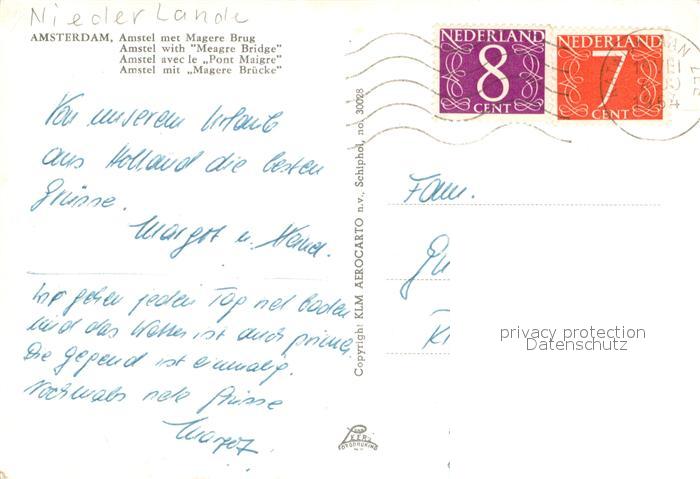 Niederlande
AMSTERDAM, Amstel met Magere Brug
Amstel with "Meagre Bridge"
Amstel avec le „Pont Maigre"
Amstel mit „Magere Brücke"
Von unserem Urlaub
aus Holland die besten
Grüsse.
Margot u. Hend.
Wir gehen jeden Tag viel baden
und das Wetter ist auch prima.
Die Gegend ist einmalig.
Nochmals viele Grüsse
Margot
Copyright KLM AEROCARTO n.v., Schiphol, no. 30028
NEDERLAND
8
CENT
NEDERLAND
7
CENT
Fam.
privacy protection
Datenschutz